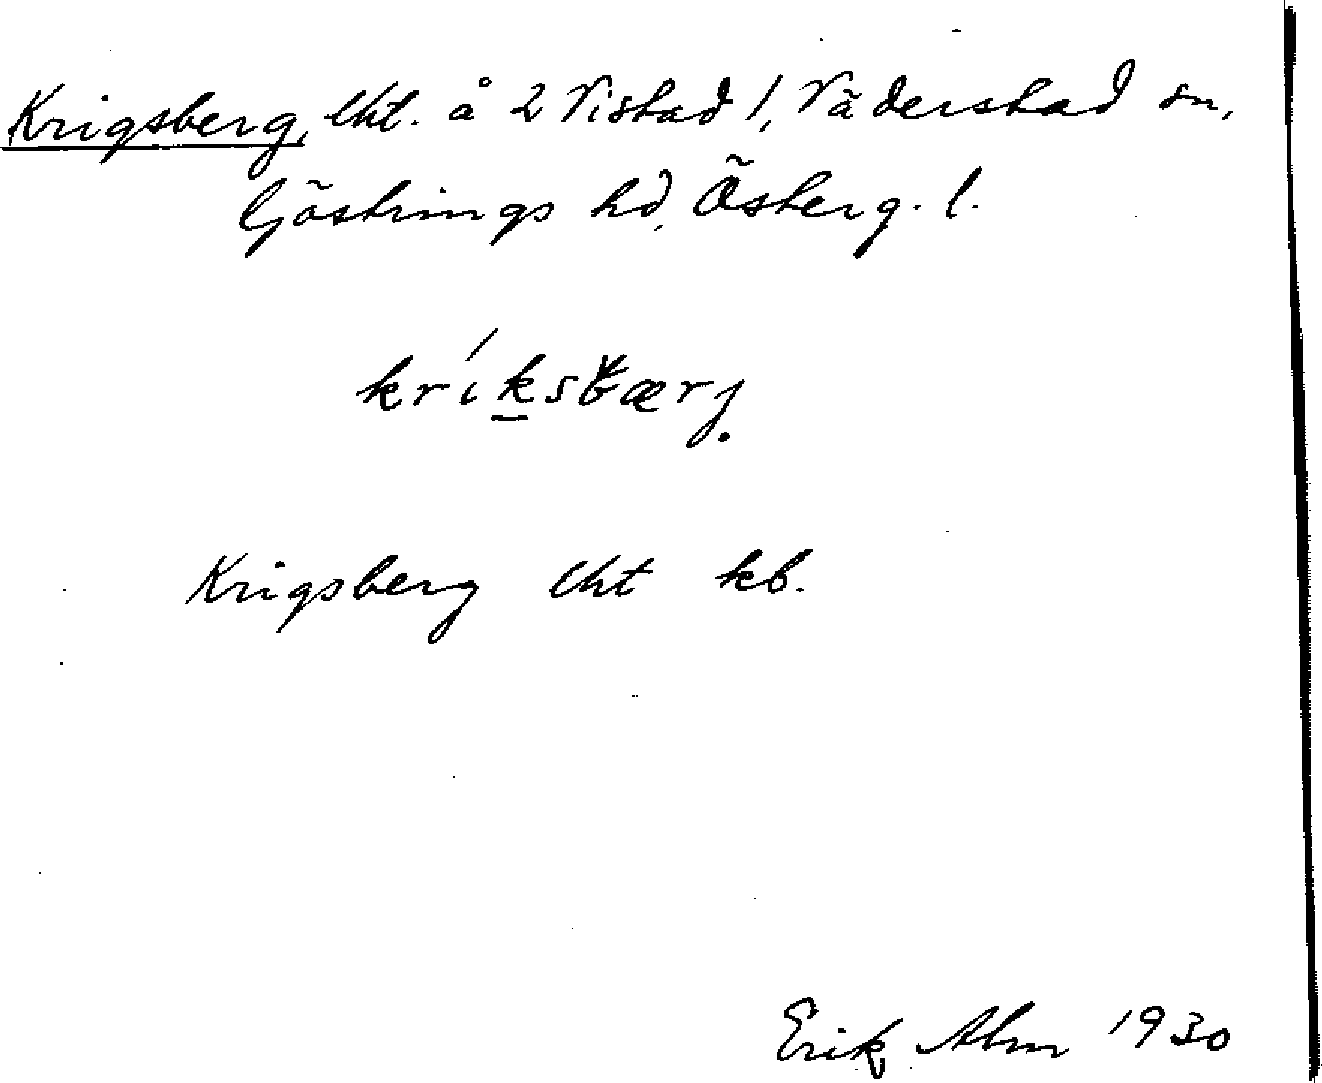 Krigsberg, lht. å 2 Vistad 1, Väderstad sn,
Göstrings hd, Österg. l.
kríksbærj
Krigsberg lht kb.
Erik Alm 1930